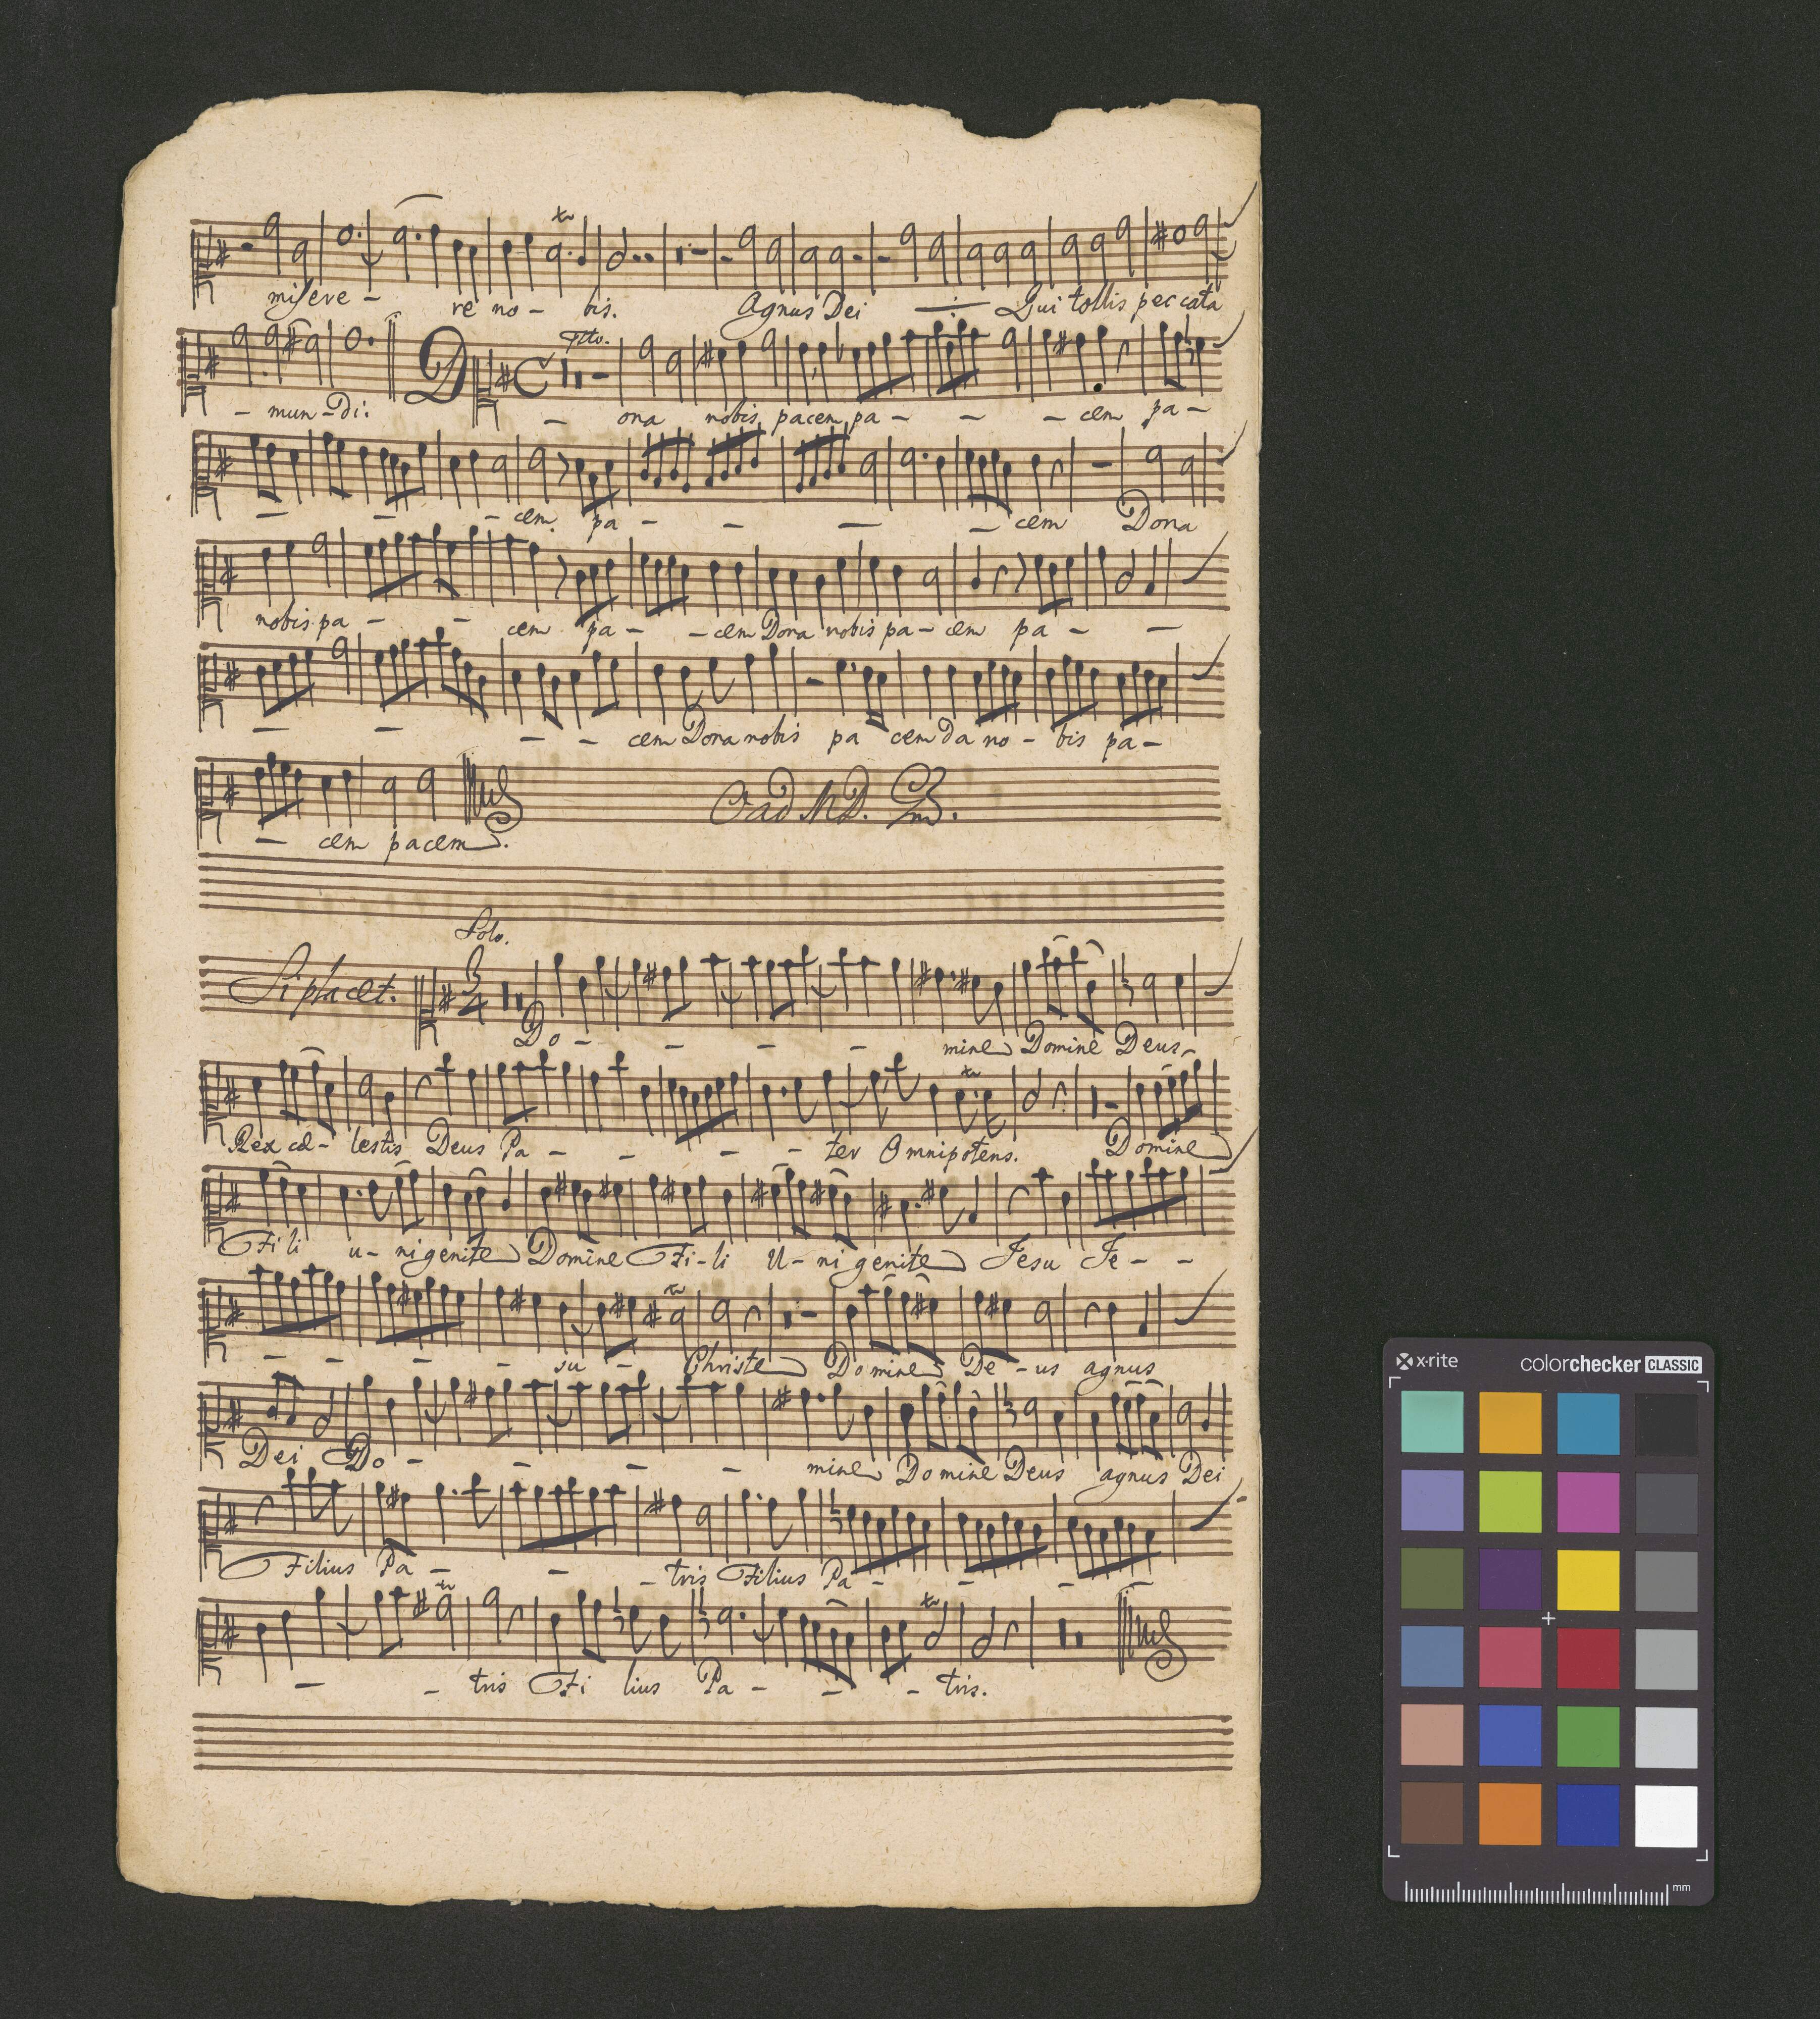 misere - re no - bis. Agnus Dei Qui tollis peccata
- mun - Di: D Ttto. - ona nobis pacem pa - - - cem pa -
- - - cem pa - - - - cem Dona
nobis pa - - cem pa - - cem Dona nobis pa - cem pa - -
- - - - cem Dona nobis pa cem da no - bis pa -
- cem pacem.
Solo.
Si placet. 3/4
Do - - - - mine Domine Deus -
Rex cæ - lestis Deus Pa - - - - ter Omnipotens. Domine
Fili u - nigenite Domine Fi - li U - nigenite Jesu Je - -
- - - - su - Christe Domine De - us agnus
Dei Do - - - - mine Domine Deus agnus Dei
Filius Pa - - - tris Filius Pa - - - -
- - tris Fi lius Pa - - - tris.
x·rite colorchecker CLASSIC
mm